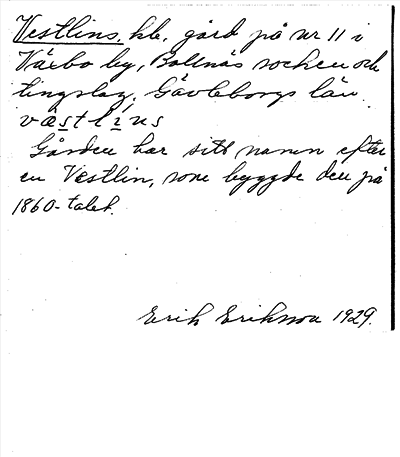 Vestlins, hb., gård på nr 11 i
Växbo by, Bollnäs socken och
tingslag, Gävleborgs län.
væstlíns
Gården har sitt namn efter
en Vestlin, som byggde den på
1860-talet.
Erik Eriksson 1929.